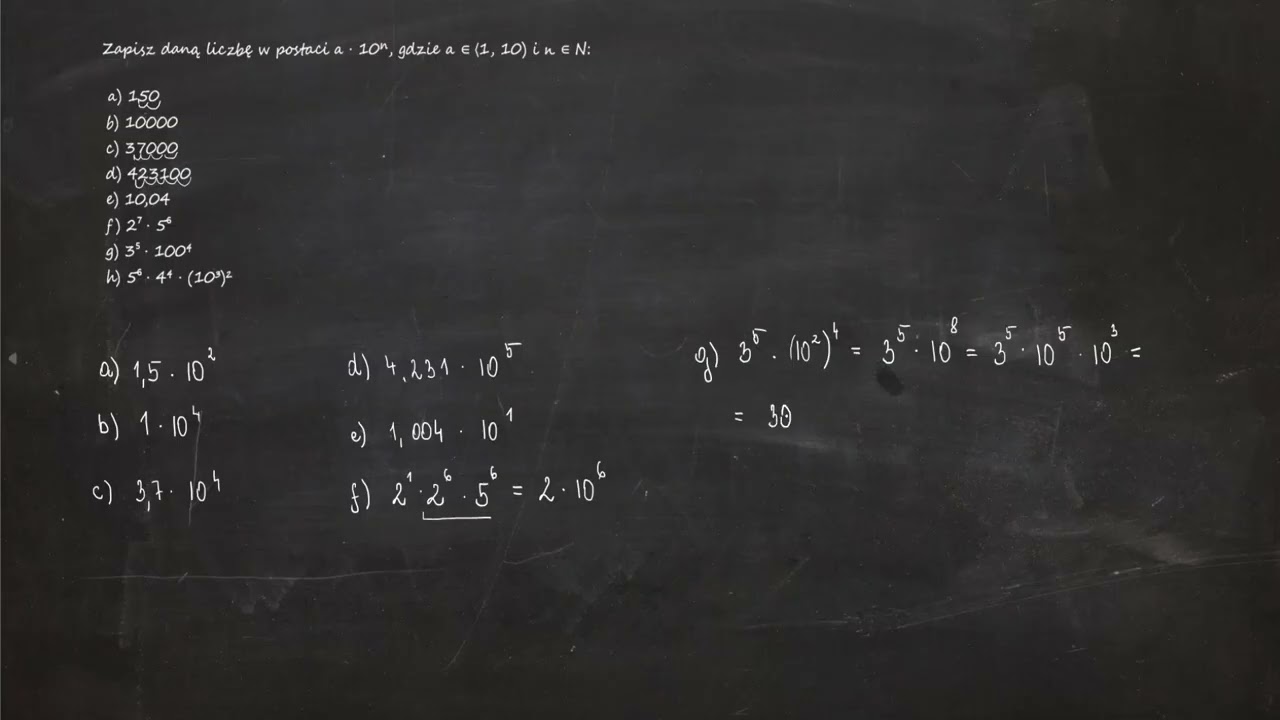 Zapisz daną liczbę w postaci a · 10ⁿ, gdzie a ∈ ⟨1, 10) i n ∈ N:
a) 150
b) 10000
c) 37000
d) 423100
e) 10,04
f) 2⁷ · 5⁶
g) 3⁵ · 100⁴
h) 5⁶ · 4⁴ · (10³)²
a) 1,5 · 10²
b) 1 · 10⁴
c) 3,7 · 10⁴
d) 4,231 · 10⁵
e) 1,004 · 10¹
f) 2¹ · 2⁶ · 5⁶ = 2 · 10⁶
g) 3⁵ · (10²)⁴ = 3⁵ · 10⁸ = 3⁵ · 10⁵ · 10³ =
= 30